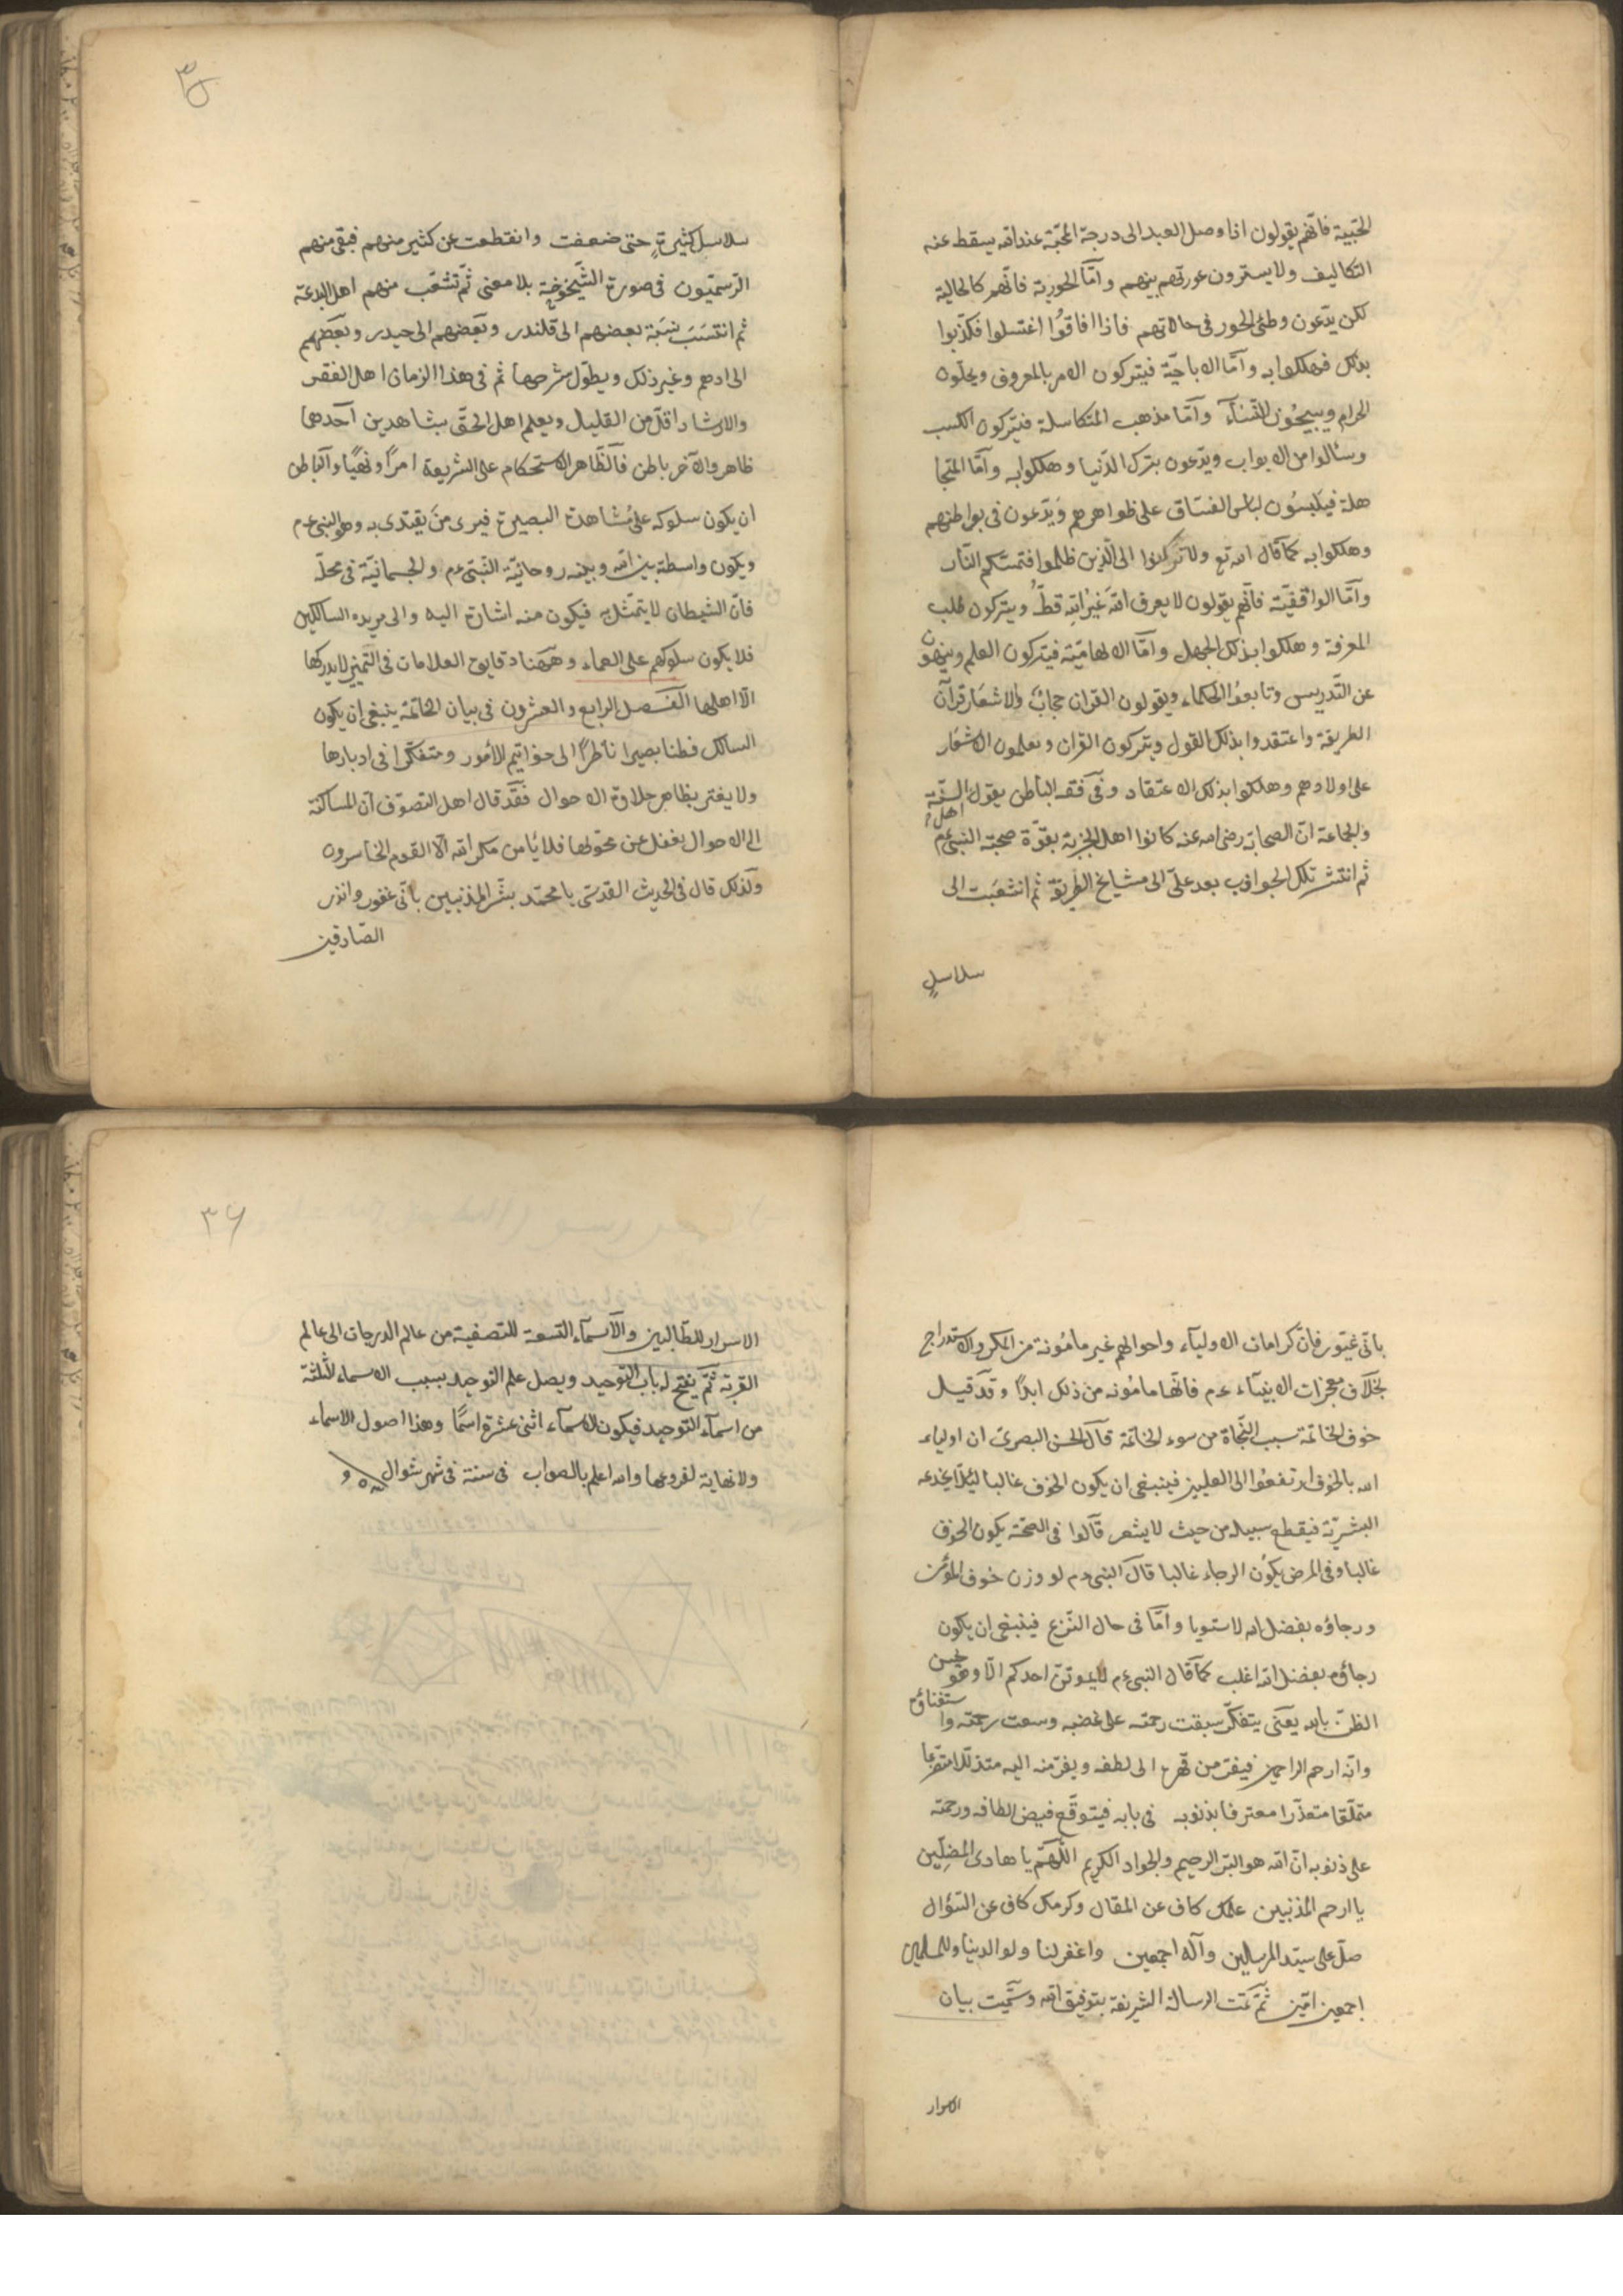 الحبّية فانّهم يقولون اذا وصل العبد الى درجة المحبّة عند الله يسقط عنه
التكاليف ولا يسترون عورتهم بينهم وامّا الحورية فانّهم كالحالية
لكن يدّعون وطئ الحور فى حالاتهم فاذا افاقوا اغتسلوا فكذّبوا
بذلك فهلكوا به وامّا الاباحيّة فيتركون الامر بالمعروف ويحلّون
الحرام ويبيحون النّسآء وامّا مذهب المتكاسلة فيتركون الكسب
وسئالوا من الابواب ويدّعون بترك الدّنيا وهلكوا به وامّا المتجا
هلة فيلبسون لباس الفسّاق على ظواهرهم ويدّعون فى بواطنهم
وهلكوا به كما قال الله تع ولا تركنوا الى الّذين ظلموا فتمسّكم النّار
وامّا الواقفيّة فانّهم يقولون لا يعرف الله غير الله قطّ ويتركون طلب
المعرفة وهلكوا بذلك الجهل وامّا الالهاميّة فيتركون العلم وينهون
عن التّدريس وتابعوا الحكماء ويقولون القران حجاب والاشعار قرآن
الطريقة واعتقدوا بذلك القول ويتركون القران ويعلمون الاشعار
على اولادهم وهلكوا بذلك الاعتقاد وفى فقه الباطن يقول اهل السنّة
والجماعة انّ الصحابة رضى الله عنه كانوا اهل الجزبة بقوّة صحبة النبى عم
ثم انتشر تلك الجواذب بعد علىّ الى مشايخ الطّريقة ثم انشعبت الى
سلاسلٍ
٣٥
سلاسل كثيرةٍ حتى ضعفت وانقطعت عن كثير منهم فبقى منهم
الرّسميّون فى صورة الشّيخوخة بلا معنى ثم تشعّب منهم اهل البدعة
ثم انتسب نسبة بعضهم الى قلندر وبعضهم الى حيدر وبعضهم
الى ادهم وغير ذلك ويطول شرحها ثم فى هذا الزمان اهل الفقر
والارشاد اقلّ من القليل ويعلم اهل الحقّ بشاهدين احدهما
ظاهر والآخر باطن فالظّاهر الاستحكام على الشريعة امرًا ونهيًا والباطن
ان يكون سلوكه على مشاهدة البصيرة فيرى من يقتدى به وهو النبى عم
ويكون واسطة بين الله وبينه روحانيّة النّبىّ عم والجسمانيّة فى محلّه
فانّ الشيطان لا يتمثّل به فيكون منه اشارة اليه والى مريده السالكين
فلا يكون سلوكهم على العماء وههنا دقايق العلامات فى التّميز لا يدركها
الّا اهلها الفصل الرابع والعشرون فى بيان الخاتمة ينبغى ان يكون
السالك فطنا بصيرا ناظرًا الى خواتيم الامور ومتفكّرا فى ادبارها
ولا يغتر بظاهر حلاوة الاحوال فقد قال اهل التصوّف انّ المساكنة
الى الاحوال يغفل عن محوّلها فلا يأمن مكر الله الّا القوم الخاسرون
وكذلك قال فى الحديث القدسىّ يا محمّد بشّر المذنبين بانّى غفور وانذر
الصّادقين
بانّى غيّور فانّ كرامات الاولياء واحوالهم غير مامونة من المكر والاستدراج
بخلاف معجزات الانبيآء عم فانّها مامونه من ذلك ابدًا وقد قيل
خوف الخاتمة سبب النّجاة من سوء الخاتمة قال الحسن البصرى ان اولياء
الله بالخوف ارتفعوا الى العليين فينبغى ان يكون الخوف غالبا ليئلّا يخدعه
البشريّة فيقطع سبيله من حيث لا يشعر قالوا فى الصحّة يكون الخوف
غالبا وفى المرض يكون الرجاء غالبا قال النبى عم لو وزن خوف المؤمن
ورجاؤه بفضل الله لاستويا وامّا فى حال النّزع فينبغى ان يكون
رجاؤه بفضل الله اغلب كما قال النبى عم لا يموتنّ احدكم الّا وهو يحسن
الظنّ بالله يعنى يتفكّر سبقت رحمته على غضبه وسعت رحمته واستغناؤه
وانّه ارحم الراحمين فيفرّ من قهره الى لطفه ويفرّ منه اليه متذلّلا متضرّعا
متملّقا متعذّرا معترفا بذنوبه فى بابه فيتوقّع فيض الطافه ورحمته
على ذنوبه انّ الله هو البرّ الرحيم والجواد الكريم اللّهمّ يا هادى المضلّين
يا ارحم المذنبين علمك كاف عن المقال وكرمك كاف عن السّؤال
صلّ على سيّد المرسلين وآله اجمعين واغفر لنا ولوالدينا وللمسلمين
اجمعين امين ثمّ تمّت الرسالة الشريفة بتوفيق الله وسمّيت بيان
الاسرار
٣٦
الاسرار للطّالبين والاسمآء التسعة للتصفية من عالم الدرجات الى عالم
القربة ثمّ يفتح له باب التوحيد ويصل علم التوحيد بسبب الاسماء الثلثة
من اسمآء التوحيد فيكون الاسمآء اثنى عشرة اسمًا وهذا اصول الاسماء
ولا نهاية لفروعها والله اعلم بالصواب فى سنة فى شهر شوال